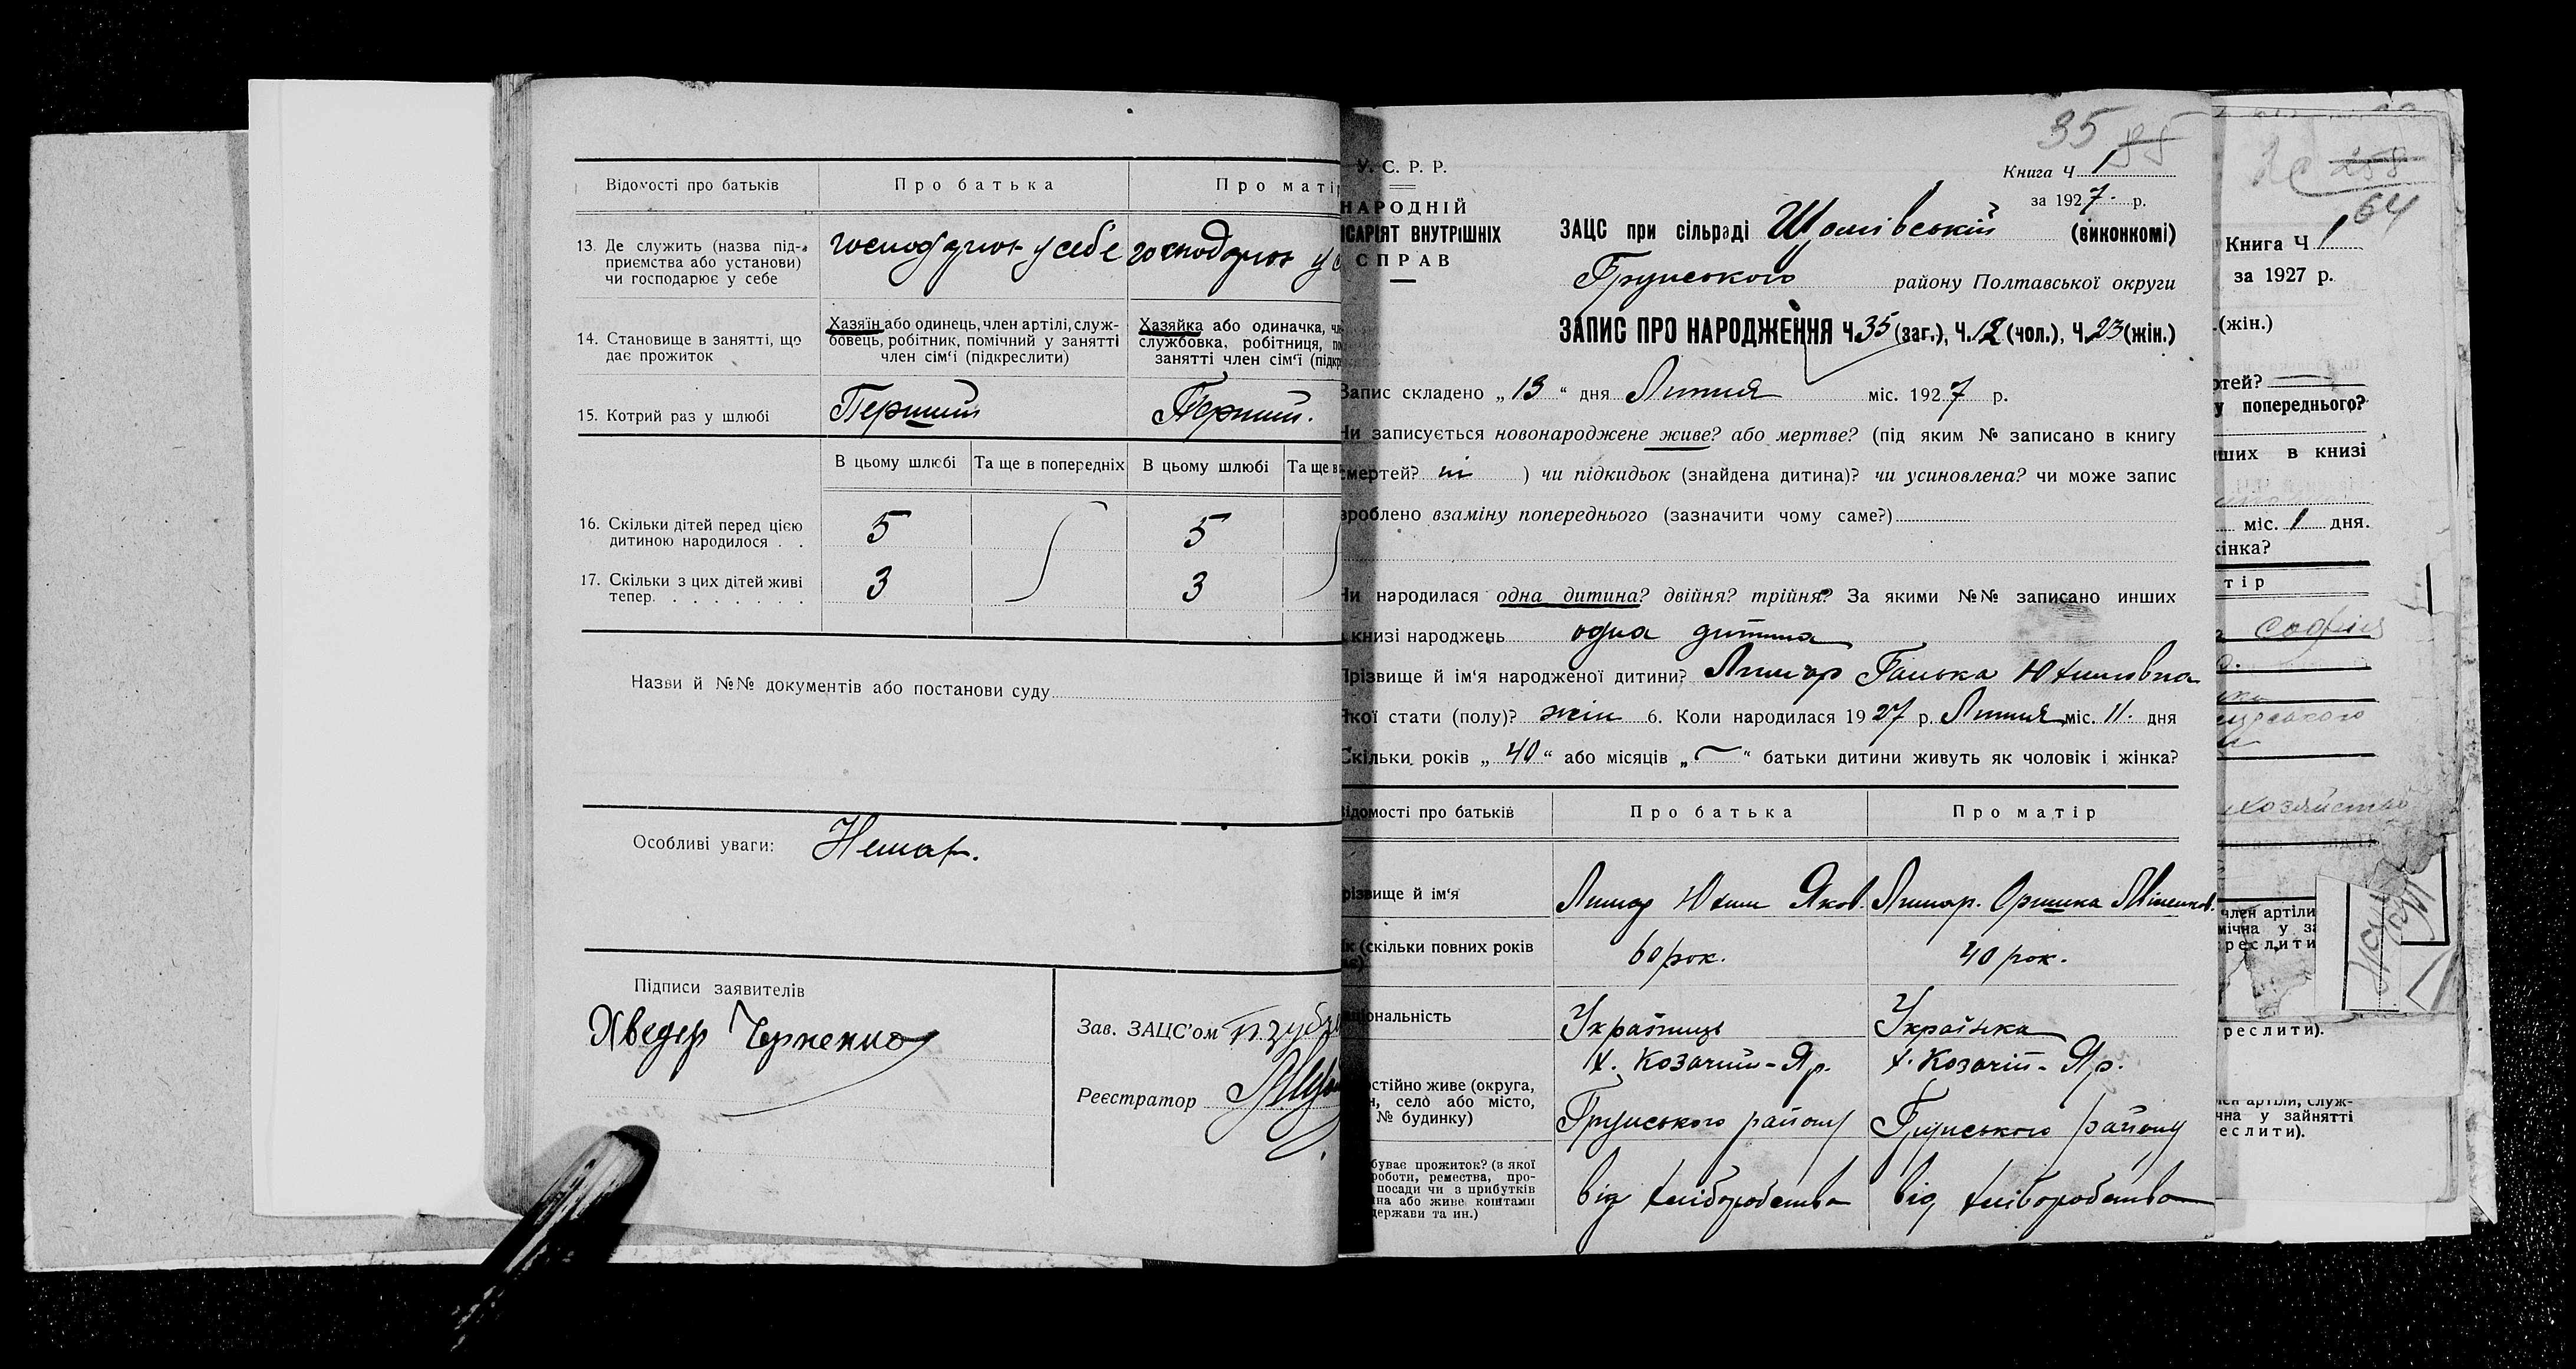 Відомості про батьків
Про батька
Про матір
13. Де служить (назва під-
приємства або установи)
чи господарює у себе
господарює у себе
господарює у с
14. Становище в занятті, що
дає прожиток
Хазяїн або одинець, член артілі, служ-
бовець, робітник, помічний у занятті
член сім‘ї (підкреслити)
Хазяйка або одиначка, чл
службовка, робітниця, по
занятті член сім‘ї (підкр
15. Котрий раз у шлюбі
Перший
Перший.
В цьому шлюбі
Та ще в попередніх
В цьому шлюбі
Та ще в
16. Скільки дітей перед цією
дитиною народилося . .
5
5
17. Скільки з цих дітей живі
тепер. . . . . . . .
3
3
Назви й №№ документів або постанови суду
Особливі уваги: Немає.
Підписи заявителів
Хведер Черненко
Зав. ЗАЦС’ом
Реєстратор
35
У. С. Р. Р.
НАРОДНІЙ
ІСАРІЯТ ВНУТРІШНІХ
СПРАВ
Книга Ч 1
за 1927 р.
ЗАЦС при сільраді (виконкомі)
Грунського району Полтавської округи
ЗАПИС ПРО НАРОДЖЕННЯ Ч. 35 (заг.), Ч. 12 (чол.), Ч. 23 (жін.)
Запис складено „ 13 “ дня Липня міс. 1927 р.
Чи записується новонароджене живе? або мертве? (під яким № записано в книгу
смертей? ні ) чи підкидьок (знайдена дитина)? чи усиновлена? чи може запис
зроблено взаміну попереднього (зазначити чому саме?)
Чи народилася одна дитина? двійня? трійня? За якими №№ записано инших
книзі народжень одна дитина
Прізвище й ім‘я народженої дитини? Лимар Ганька Юхимовна
Якої стати (полу)? жін 6. Коли народилася 1927 р. Липня міс. 11. дня
Скільки років „ 40 “ або місяців „ — “ батьки дитини живуть як чоловік і жінка?
Відомості про батьків
Про батька
Про матір
різвище й ім‘я
Лимар Юхим Яков.
Лимар. Оришка
ік (скільки повних років
60 рок.
40 рок.
ціональність
Українець
Українка
остійно живе (округа,
н, село або місто,
№ будинку)
х. Козачий-Яр.
Грунського району
х. Козачій-Яр.
Грунського району
буває прожиток? (з якої
роботи, ремества, про-
посади чи з прибутків
на або живе коштами
держави та ин.)
від хліборобства
від хліборобства
64
Книга Ч 1
за 1927 р.
(жін.)
ртей?
у попереднього?
нших в книзі
міс. 1 дня.
жінка?
тір
Софія
член артіли
мічна у за
реслити
реслити).
лен артіли, служ-
чна у зайнятті
еслити).